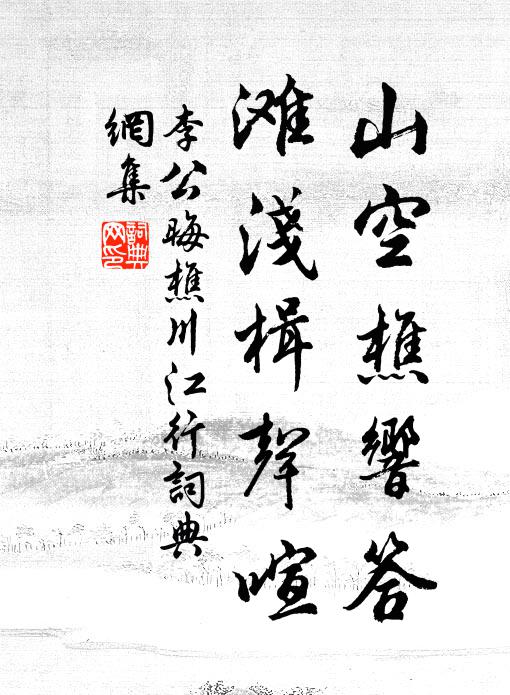 山空樵響答
滩淺楫聲喧
李公晦樵川江行詞典
網集
詞典網印